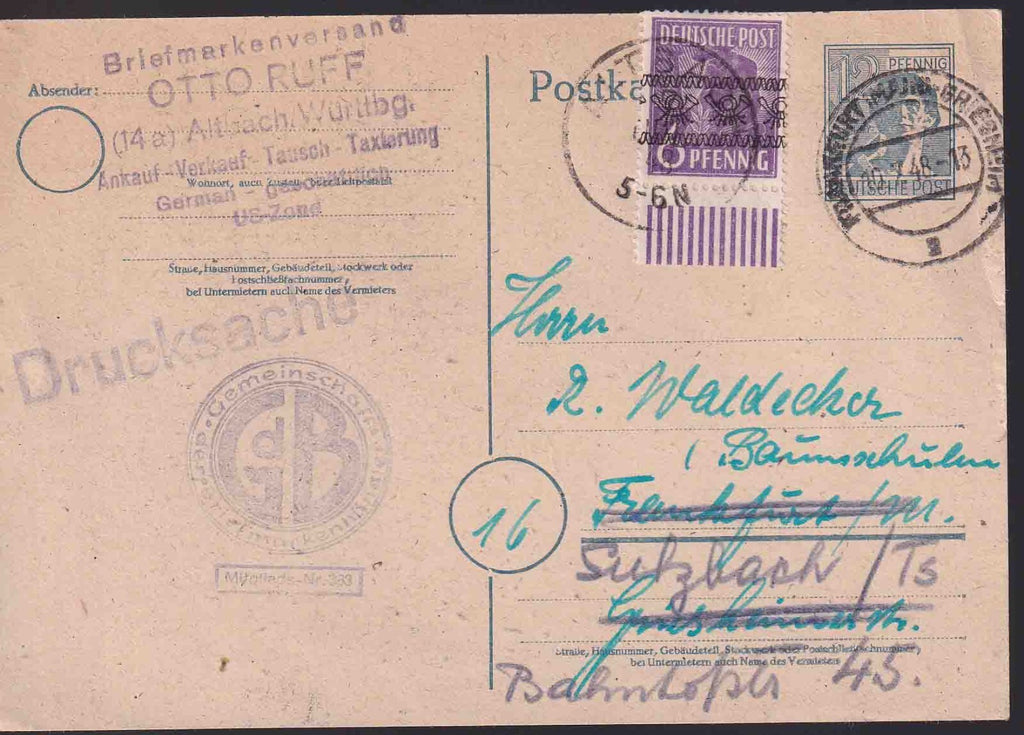 Briefmarkenversand
OTTO RUFF
Absender:
(14a) Altbach, Württbg.
Ankauf - Verkauf - Tausch - Taxierung
Wohnort, auch Zustell- oder Leitpostamt
German
US-Zone
Straße, Hausnummer, Gebäudeteil, Stockwerk oder
Postschließfachnummer,
bei Untermietern auch Name des Vermieters
Drucksache
Gemeinschaft
GdB
Mitglieds-Nr. 383
Postka
DEUTSCHE POST
6 PFENNIG
5-6N
12 PFENNIG
DEUTSCHE POST
FRANKFURT
48.-13
Herrn
2. Waldecker
(Baumschulen
16
Frankfurt/M.
Sulzbach/Ts
Griesheimerstr.
Straße, Hausnummer, Gebäudeteil, Stockwerk oder Postschließfachnummer,
bei Untermietern auch Name des Vermieters
45.